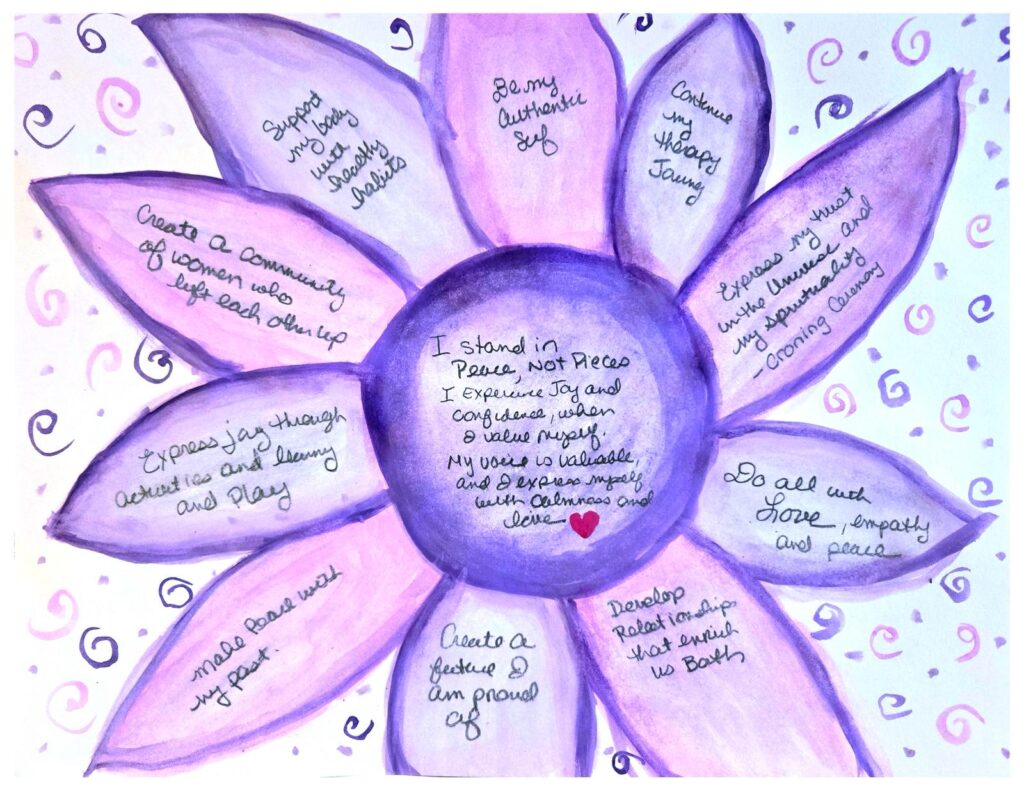 Support
my body
with
healthy
habits
Be my
Authentic
Self
Continue
my
therapy
Create a community
of women who
lift each other up
Express my trust
in the Universe and
my spirituality
- Croning Ceremony
I stand in
Peace, Not Pieces
I Experience Joy and
confidence, when
I value myself.
My voice is valuable,
and I express myself
with calmness and
love
Express joy through
activities and
and Play
Do all with
Love, empathy
and peace
make Peace with
my past.
Create a
future I
am proud
of
Develop
Relationships
that enrich
us Both